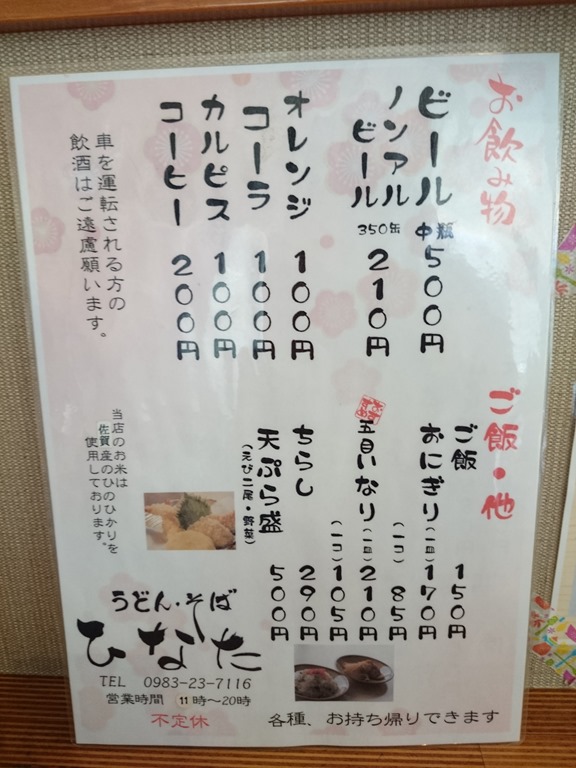 お飲み物
ビール 中瓶 500円
ノンアル
ビール 350缶 210円
オレンジ 100円
コーラ 100円
カルピス 100円
コーヒー 200円
車を運転される方の
飲酒はご遠慮願います。
ご飯・他
ご飯 150円
おにぎり(一皿) 170円
(一コ) 85円
五目いなり(一皿) 210円
(一コ) 105円
ちらし 290円
天ぷら盛 500円
(えび二尾・野菜)
当店のお米は
佐賀産のひのひかりを
使用しております。
うどん・そば
ひなた
TEL 0983-23-7116
営業時間 11時~20時
不定休
各種、お持ち帰りできます